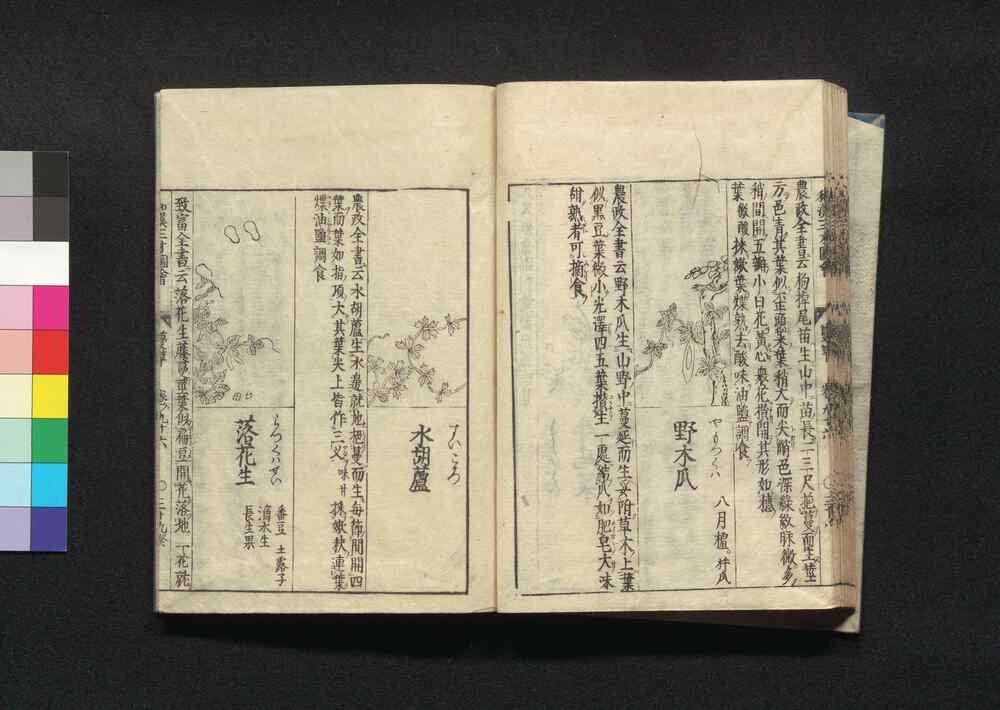 農政全書云杓掉尾苗生山中苗長二三尺莖蔓而生莖
方色青其葉似歪頭菜葉稍大而尖䑓色深綠紋脉微多
稍間開五瓣小白花黃心衆花攢開其形如穗
葉微酸採嫩葉煠熟去酸味油鹽調食
野木瓜
やもつくハ
八月樝 杵瓜
農政全書云野木瓜生山野中蔓延而生妥附草木上葉
似黑豆葉微小光澤四五葉攅生一處結瓜如肥皂大味
甜熟者可摘食
水胡蘆
すいころ
農政全書云水胡蘆生水邊就地拖蔓而生每節間開四
葉而葉如指頂大其葉尖上皆作三叉 味甘 採嫩秧連葉
煠油鹽調食
落花生
らつくハせい
番豆 土露子
滴水生
長生果
致富全書云落花生藤蔓莖葉似扁豆開花落地一花就